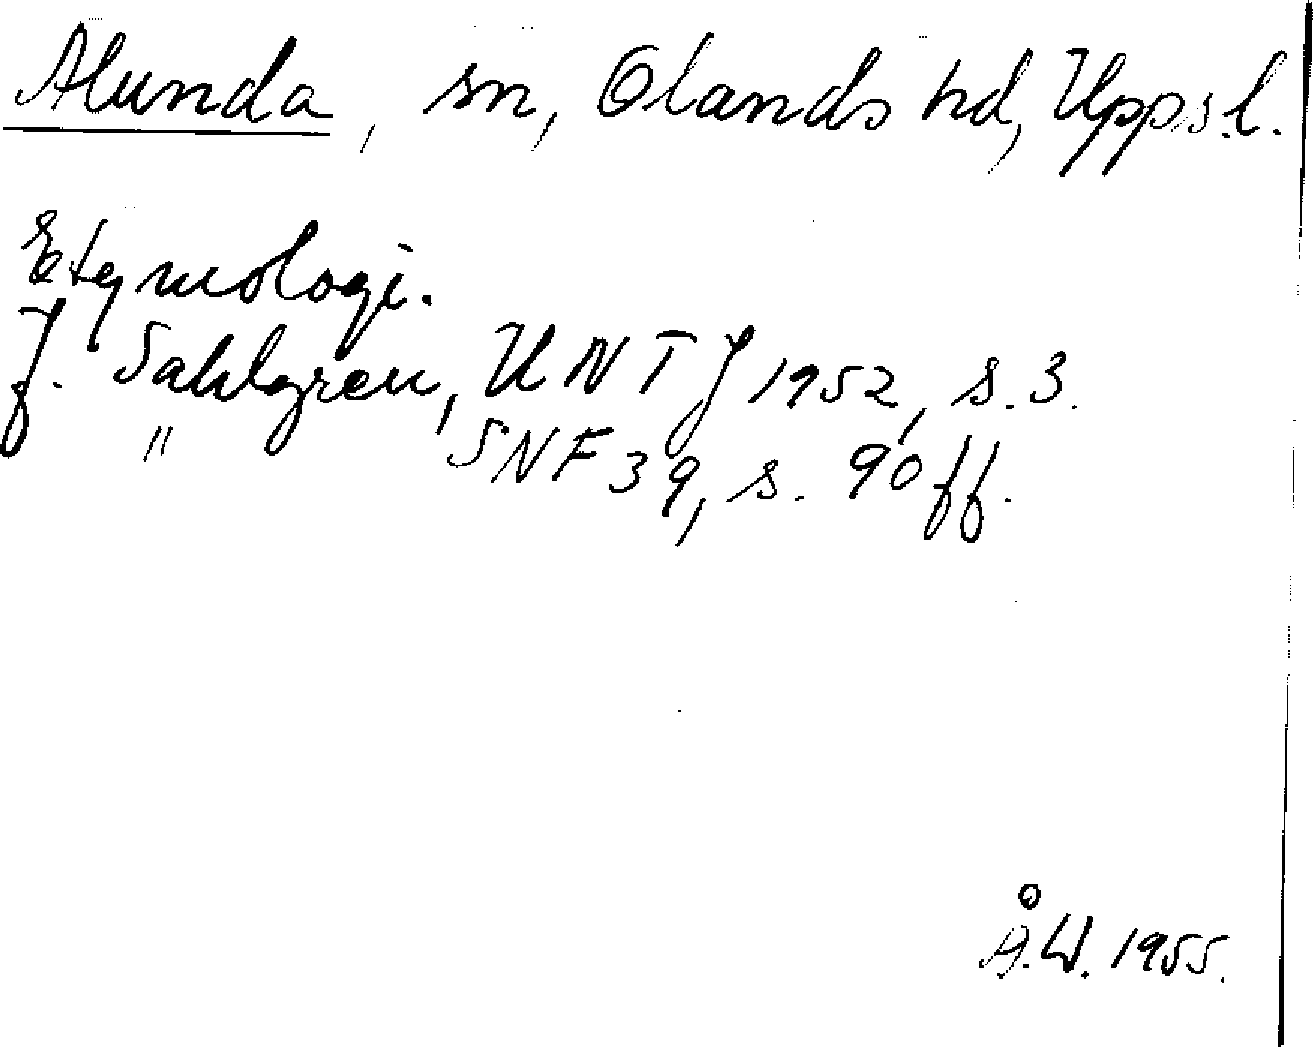 Alunda, sn, Olands hd, Upps.l.
Etymologi.
J. Sahlgren, UNT J 1952, s. 3.
" SNF 39, s. 90 ff.
Å.W. 1955.